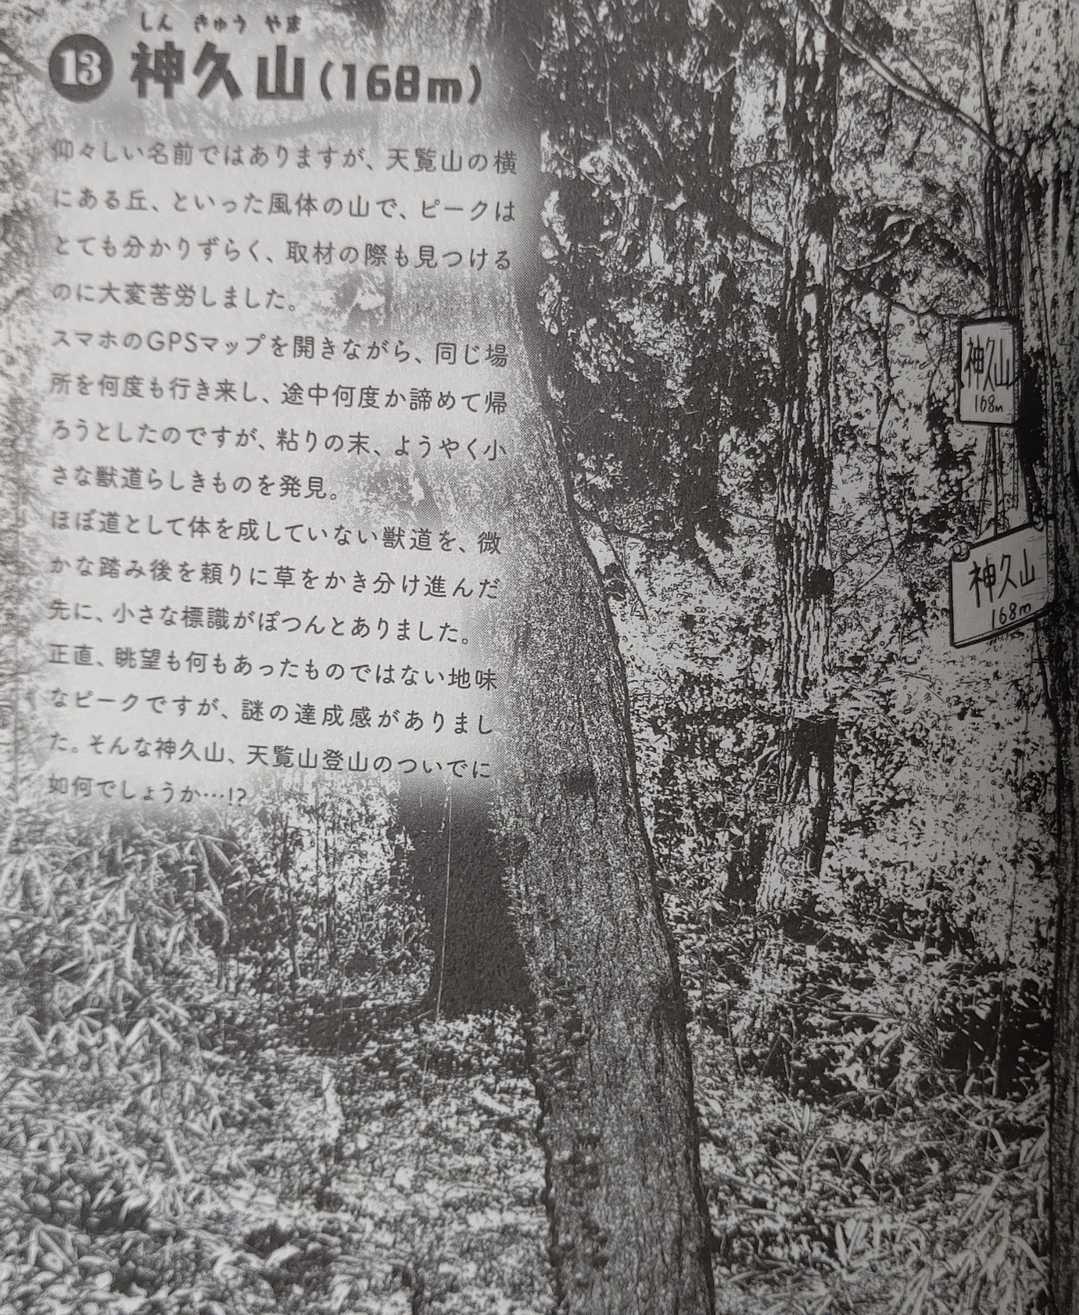 しん きゅう やま
13 神久山(168m)
仰々しい名前ではありますが、天覧山の横
にある丘、といった風体の山で、ピークは
とても分かりずらく、取材の際も見つける
のに大変苦労しました。
スマホのGPSマップを開きながら、同じ場
所を何度も行き来し、途中何度か諦めて帰
ろうとしたのですが、粘りの末、ようやく小
さな獣道らしきものを発見。
ほぼ道として体を成していない獣道を、微
かな踏み後を頼りに草をかき分け進んだ
先に、小さな標識がぽつんとありました。
正直、眺望も何もあったものではない地味
なピークですが、謎の達成感がありまし
た。そんな神久山、天覧山登山のついでに
如何でしょうか…!?
神久山
168m
神久山
168m